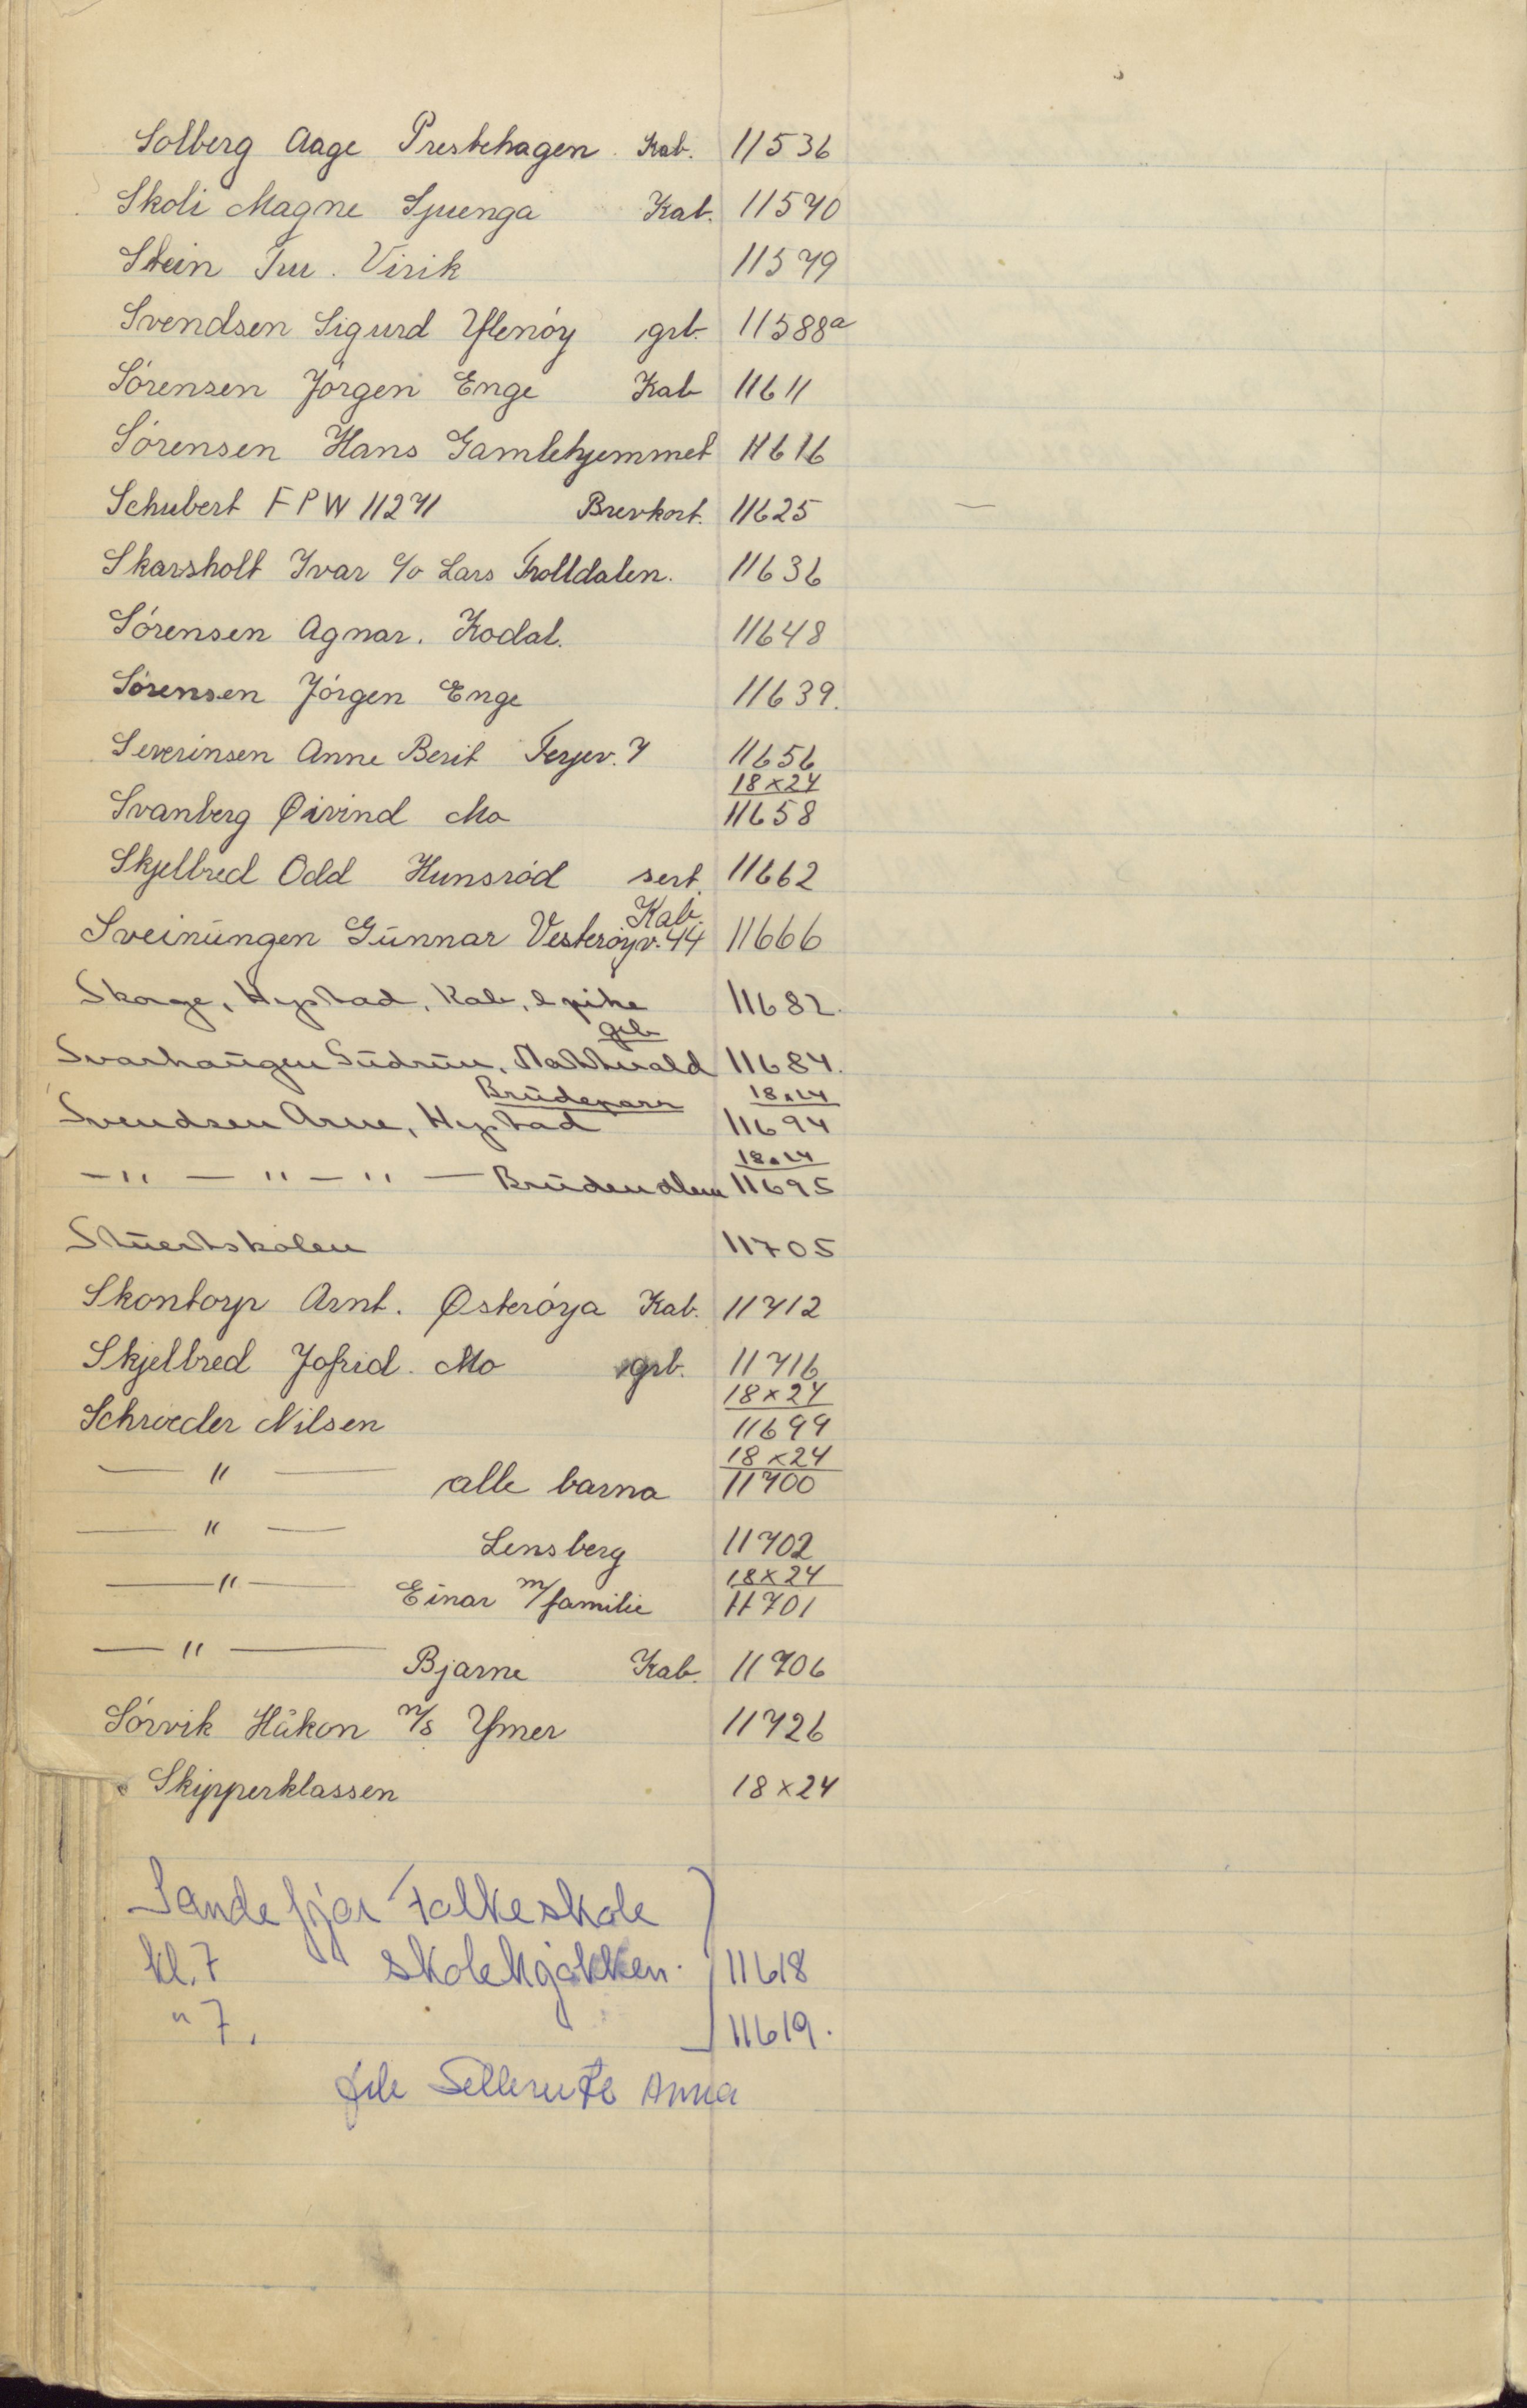 Solberg Aage Prestehagen. Kab. 11536
Skoli Magne Sjuenga Kab. 11570
Stein Tur. Virik 11579
Svendsen Sigurd Yttenøy grb. 11588a
Sørensen Jørgen Enge Kab 11611
Sørensen Hans Gamlehjemmet 11616
Schubert FPW 11271 Brevkort. 11625
Skarsholt Ivar c/o Lars Trolldalen. 11636
Sørensen Agnar. Kodal. 11648
Sørensen Jørgen Enge 11639.
Severinsen Anne Berit Ferjev. 7 11656
18x24
Svanberg Øivind Mo 11658
Skjelbred Odd Hunsrød sert. 11662
Kab.
Sveinungen Gunnar Vesterøyv. 44 11666
Skorge, Hystad, Kab, 2 piker 11682.
grb
Svarhaugen Gudrun, 11684.
Brudepar 18x24
Svendsen Arne, Hystad 11694
18x24
—"—"—"— Bruden alene 11695
Stuertskolen 11705
Skontorp Arnt. Østerøya Kab. 11712
Skjelbred Jofrid. Mo grb. 11716
18x24
Schrøder Nilsen 11699
18x24
—"— alle barna 11700
—"— Lensberg 11702
18x24
—"— Einar m/familie 11701
—"— Bjarne Kab. 11706
Sørvik Håkon m/s Ymer 11726
Skipperklassen 18x24
Sandefjor Folkeskole
kl. 7 skolekjøkken. 11618
" 7. 11619.
Anna